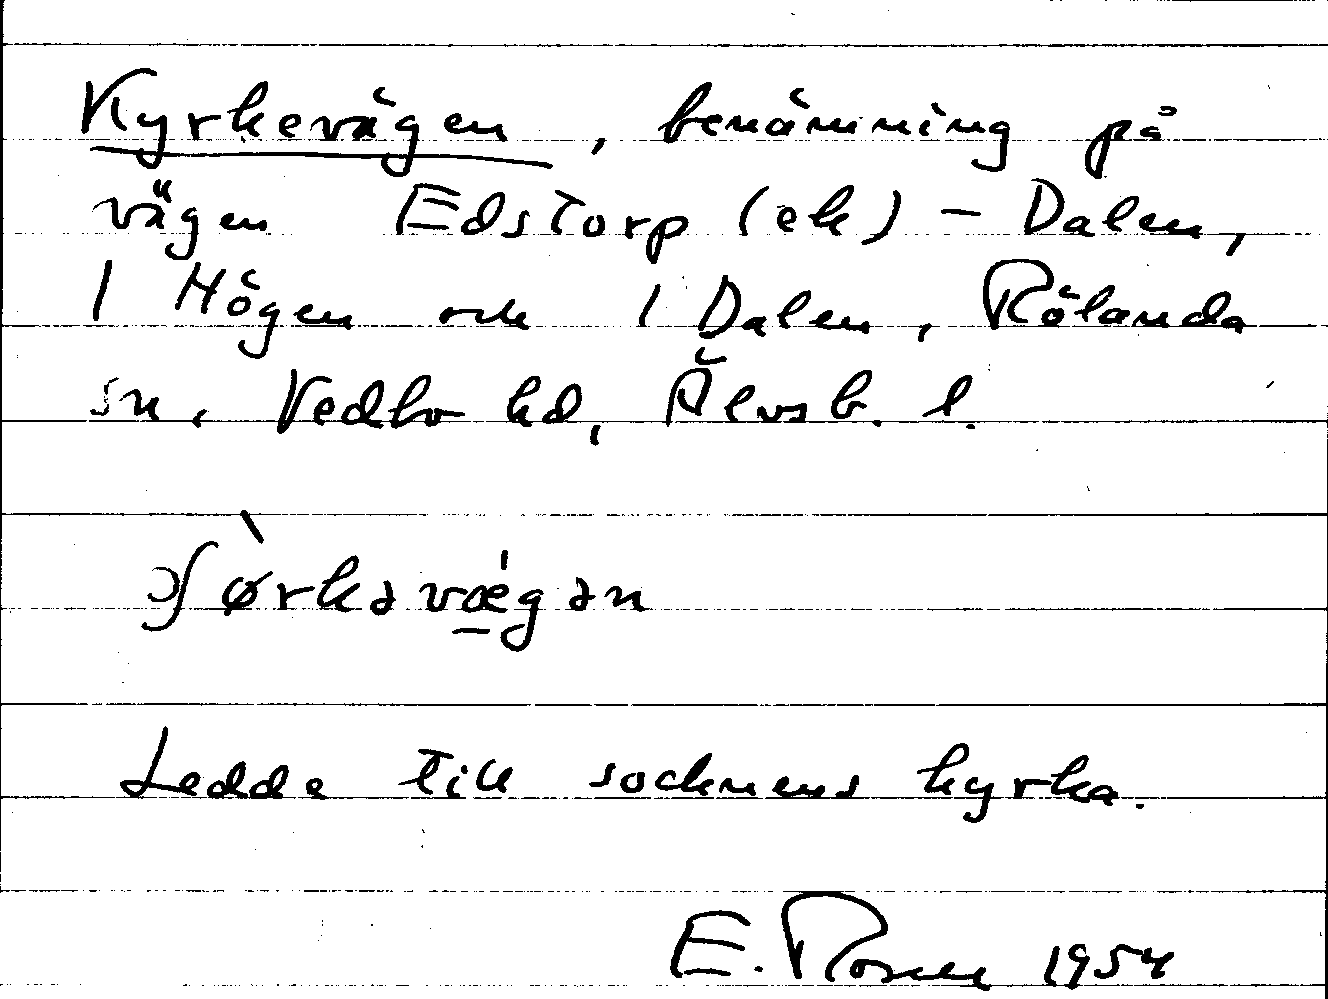 Kyrkevägen, benämning på
vägen Edstorp (ek) - Dalen,
1 Högen och 1 Dalen, Rölanda
sn, Vedbo hd, Älvsb. l.
Ledde till socknens kyrka.
E. Rosén 1954